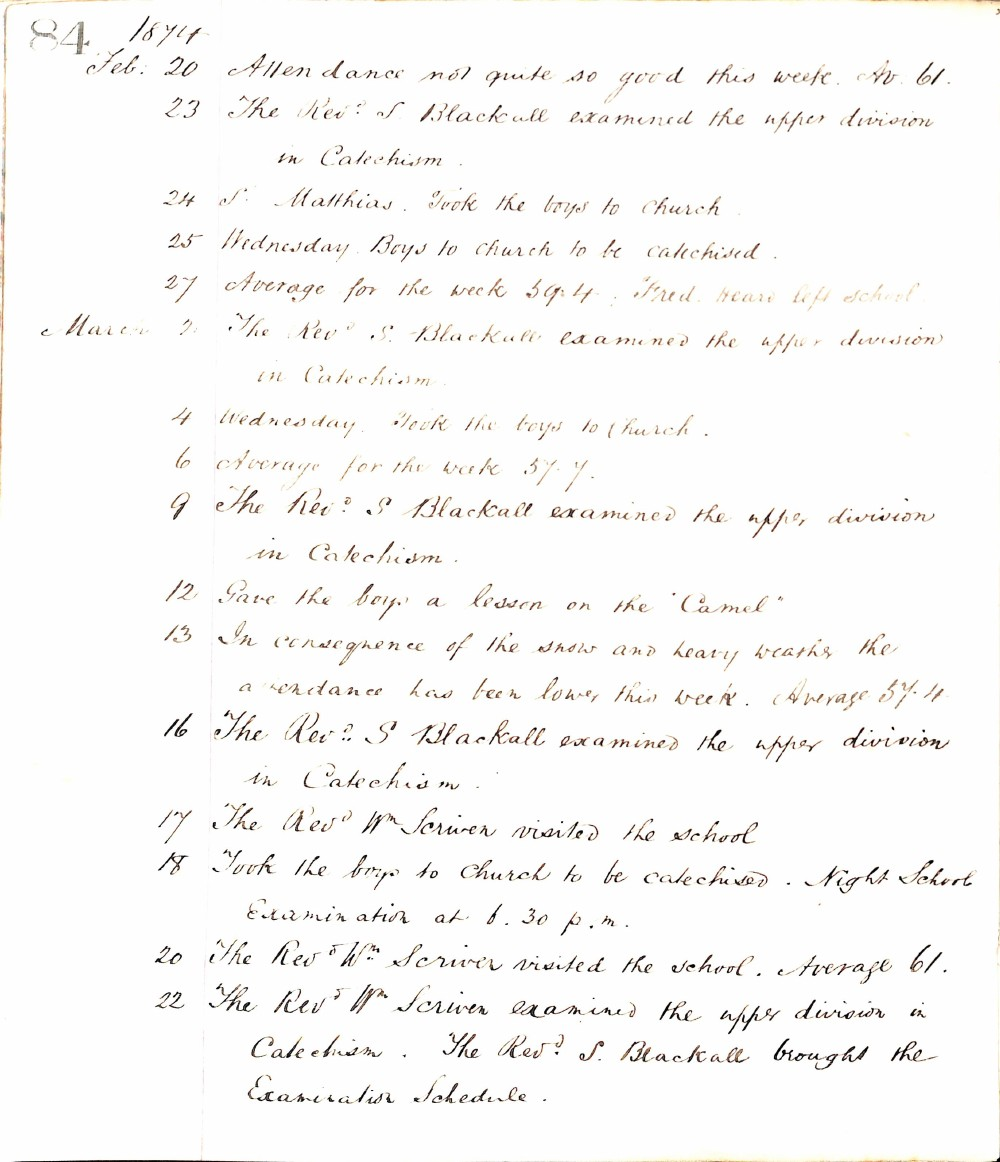 84 1874
Feb: 20 Attendance not quite so good this week. Av. 61.
23 The Revd. S. Blackall examined the upper division
in Catechism.
24 S. Matthias. Took the boys to church
25 Wednesday. Boys to church to be catechised.
27 Average for the week 59.4. Fred. Heard left school
March 2 The Revd S. Blackall examined the upper division
in Catechism.
4 Wednesday. Took the boys to Church.
6 Average for the week 57.7.
9 The Revd. S Blackall examined the upper division
in Catechism.
12 Gave the boys a lesson on the "Camel"
13 In consequence of the snow and heavy weather the
attendance has been lower this week. Average 57.4
16 The Revd. S Blackall examined the upper division
in Catechism.
17 The Revd Wm Scriven visited the school
18 Took the boys to church to be catechised. Night School
Examination at 6.30 p.m.
20 The Revd Wm Scriven visited the school. Average 61.
22 The Revd Wm Scriven examined the upper division in
Catechism. The Revd. S. Blackall brought the
Examination Schedule.